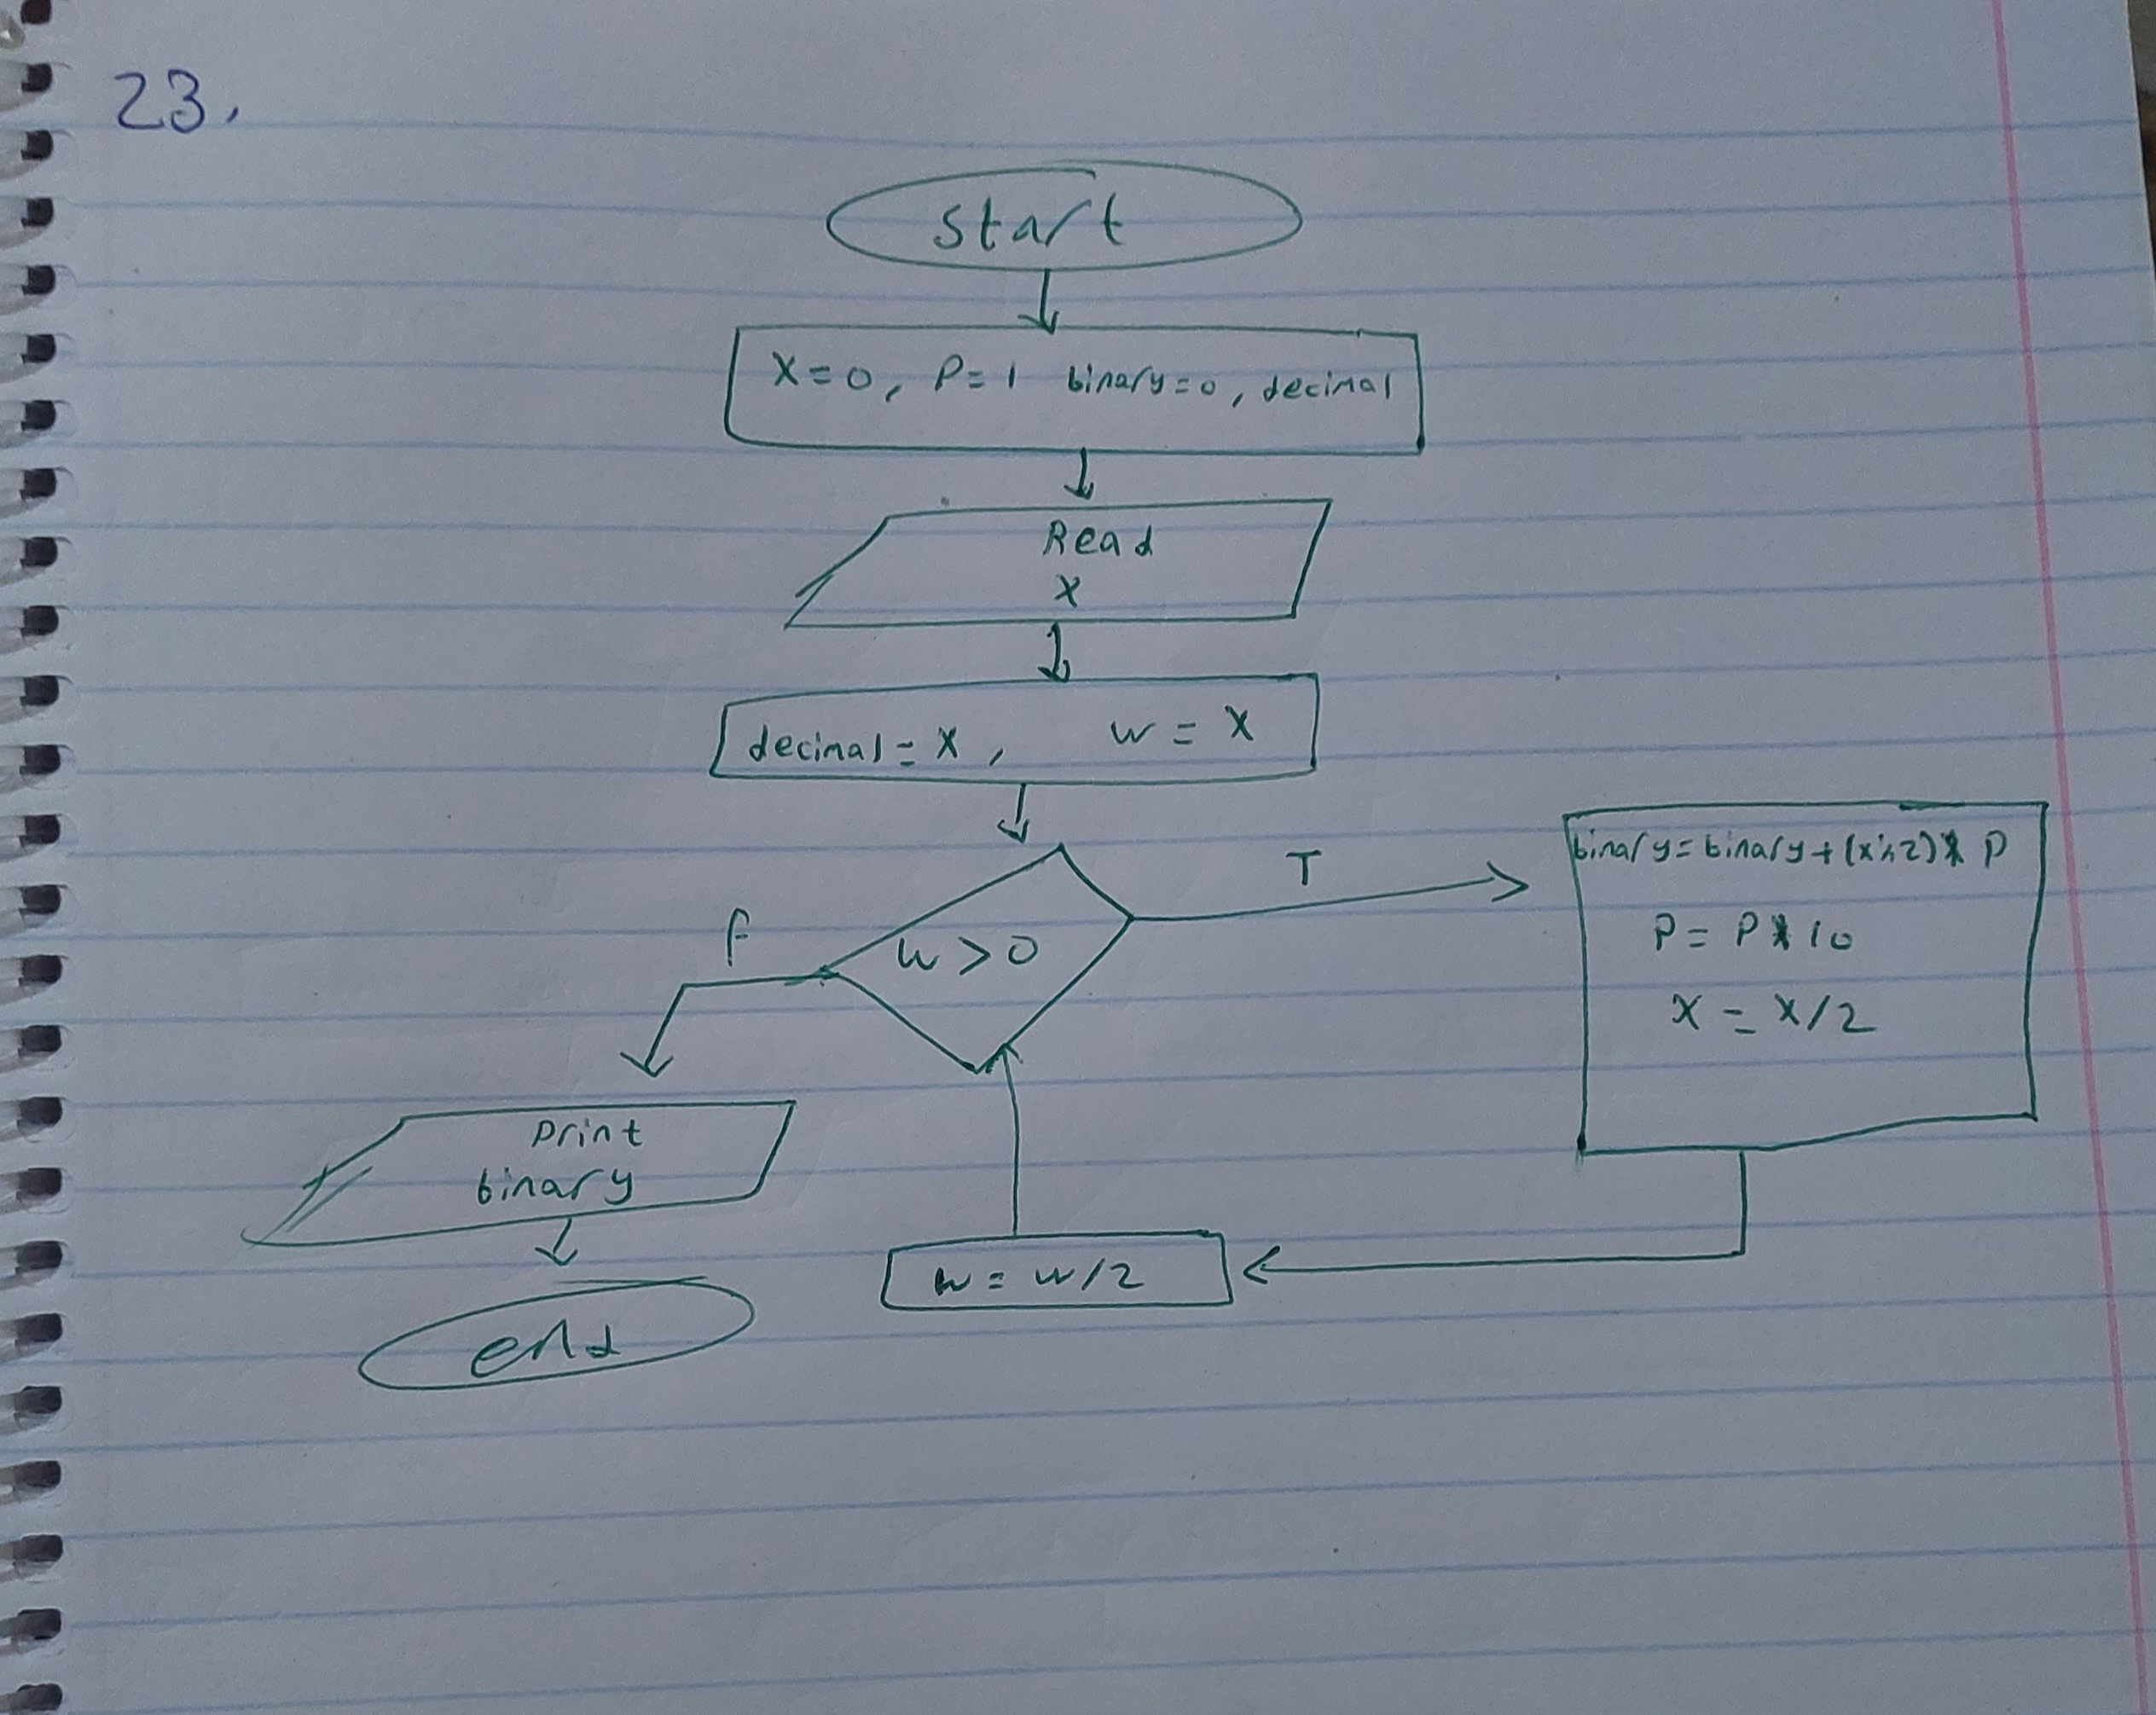 23.
start
X=0, P=1 binary=0, decimal
Read
X
decimal=X, w=X
w>0
T
F
binary=binary+(x%2)* P
P=P*10
X=X/2
Print
binary
w=w/2
end